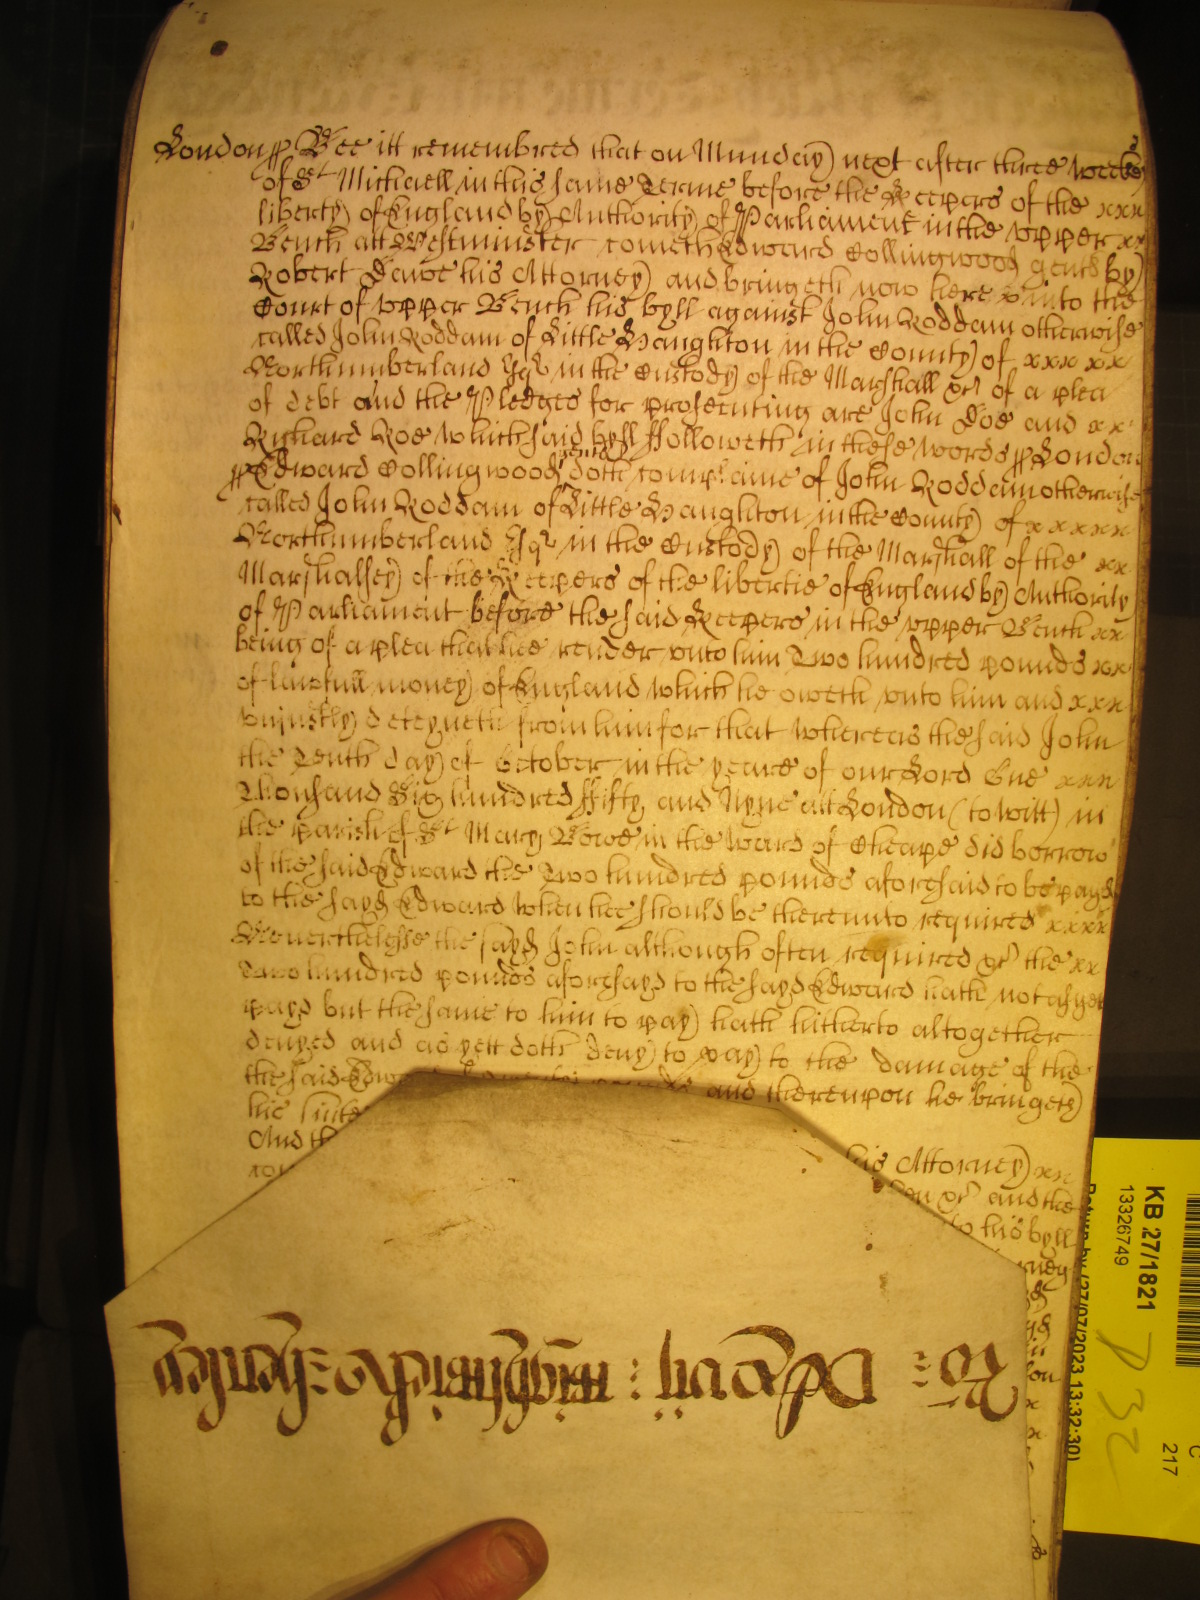 London ss Bee itt remembred that on Munday next after three weekes
of St Michaell in this same Terme before the Keepers of the xxx
liberty of England by Authority of Parliament in the vpper xx
Bench att Westminster cometh Edward Collingwood gent by
Robert Dawe his Attorney and bringeth now here into the
Court of vpper Bench his byll against John Roddam otherwise
called John Roddam of Little Haughton in the County of xxx xx
Northumberland Esqr in the Custody of the Marshall &c of a plea
of debt and the Pledges for prosecuting are John Doe and xx
Richard Roe which said byll ffolloweth in these words ss London
ss Edward Collingwood gent doth complaine of John Roddam otherwise
called John Roddam of Little Haughton in the County of xxxxx
Northumberland Esqr in the Custody of the Marshall of the xx
Marshalsey of the Keepers of the libertie of England by Authority
of Parliament before the said Keepers in the vpper Bench xx
being of a plea that hee render vnto him Two hundred pounds xx
of lawfull money of England which he oweth vnto him and xxx
vniustly deteyneth from him for that whereas the said John
the Tenth day of October in the yeare of our Lord One xxx
Thousand Six hundred ffifty and Nyne att London (to witt) in
the parish of St Mary Bowe in the Ward of Cheape did borrow
of the said Edward the Two hundred pounds aforesaid to be payd
to the sayd Edward when hee should be therevnto required xxxx
Neuerthelesse the sayd John although often required &c the xx
Two hundred pounds aforesayd to the sayd Edward hath not as yet
payd but the same to him to pay hath hitherto altogether
denyed and as yett doth deny to pay to the damage of the
the said Edw and therevpon he bringeth
his suite
And th his Attorney xx
&c and the
to his byll
KB 27/1821
13326749
Return by (27/07/2023 13:32:30)
C
217
P 32